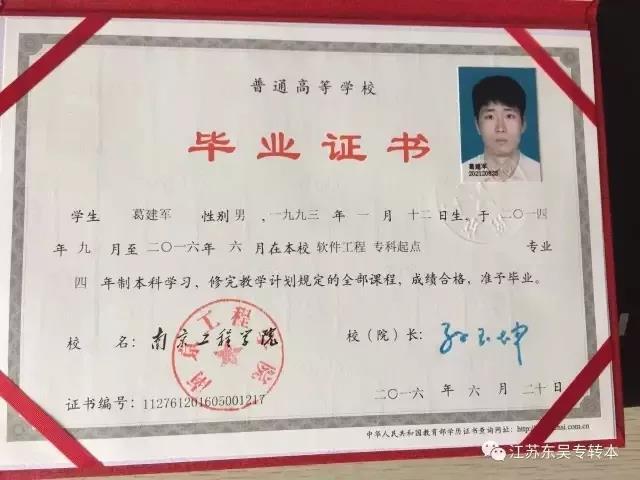 普通高等学校
毕业证书
葛建军
202120835
学生 葛建军 性别 男 ，一九九三 年 一 月 十二 日生，于 二〇一四
年 九 月至 二〇一六 年 六 月在本校 软件工程 专科起点 专业
四 年制本科学习，修完教学计划规定的全部课程，成绩合格，准予毕业。
校 名：南京工程学院
校（院）长：
南京工程学院
二〇一六 年 六 月 二十 日
证书编号：112761201605001217
中华人民共和国教育部学历证书查询网址：http://
江苏东吴专转本